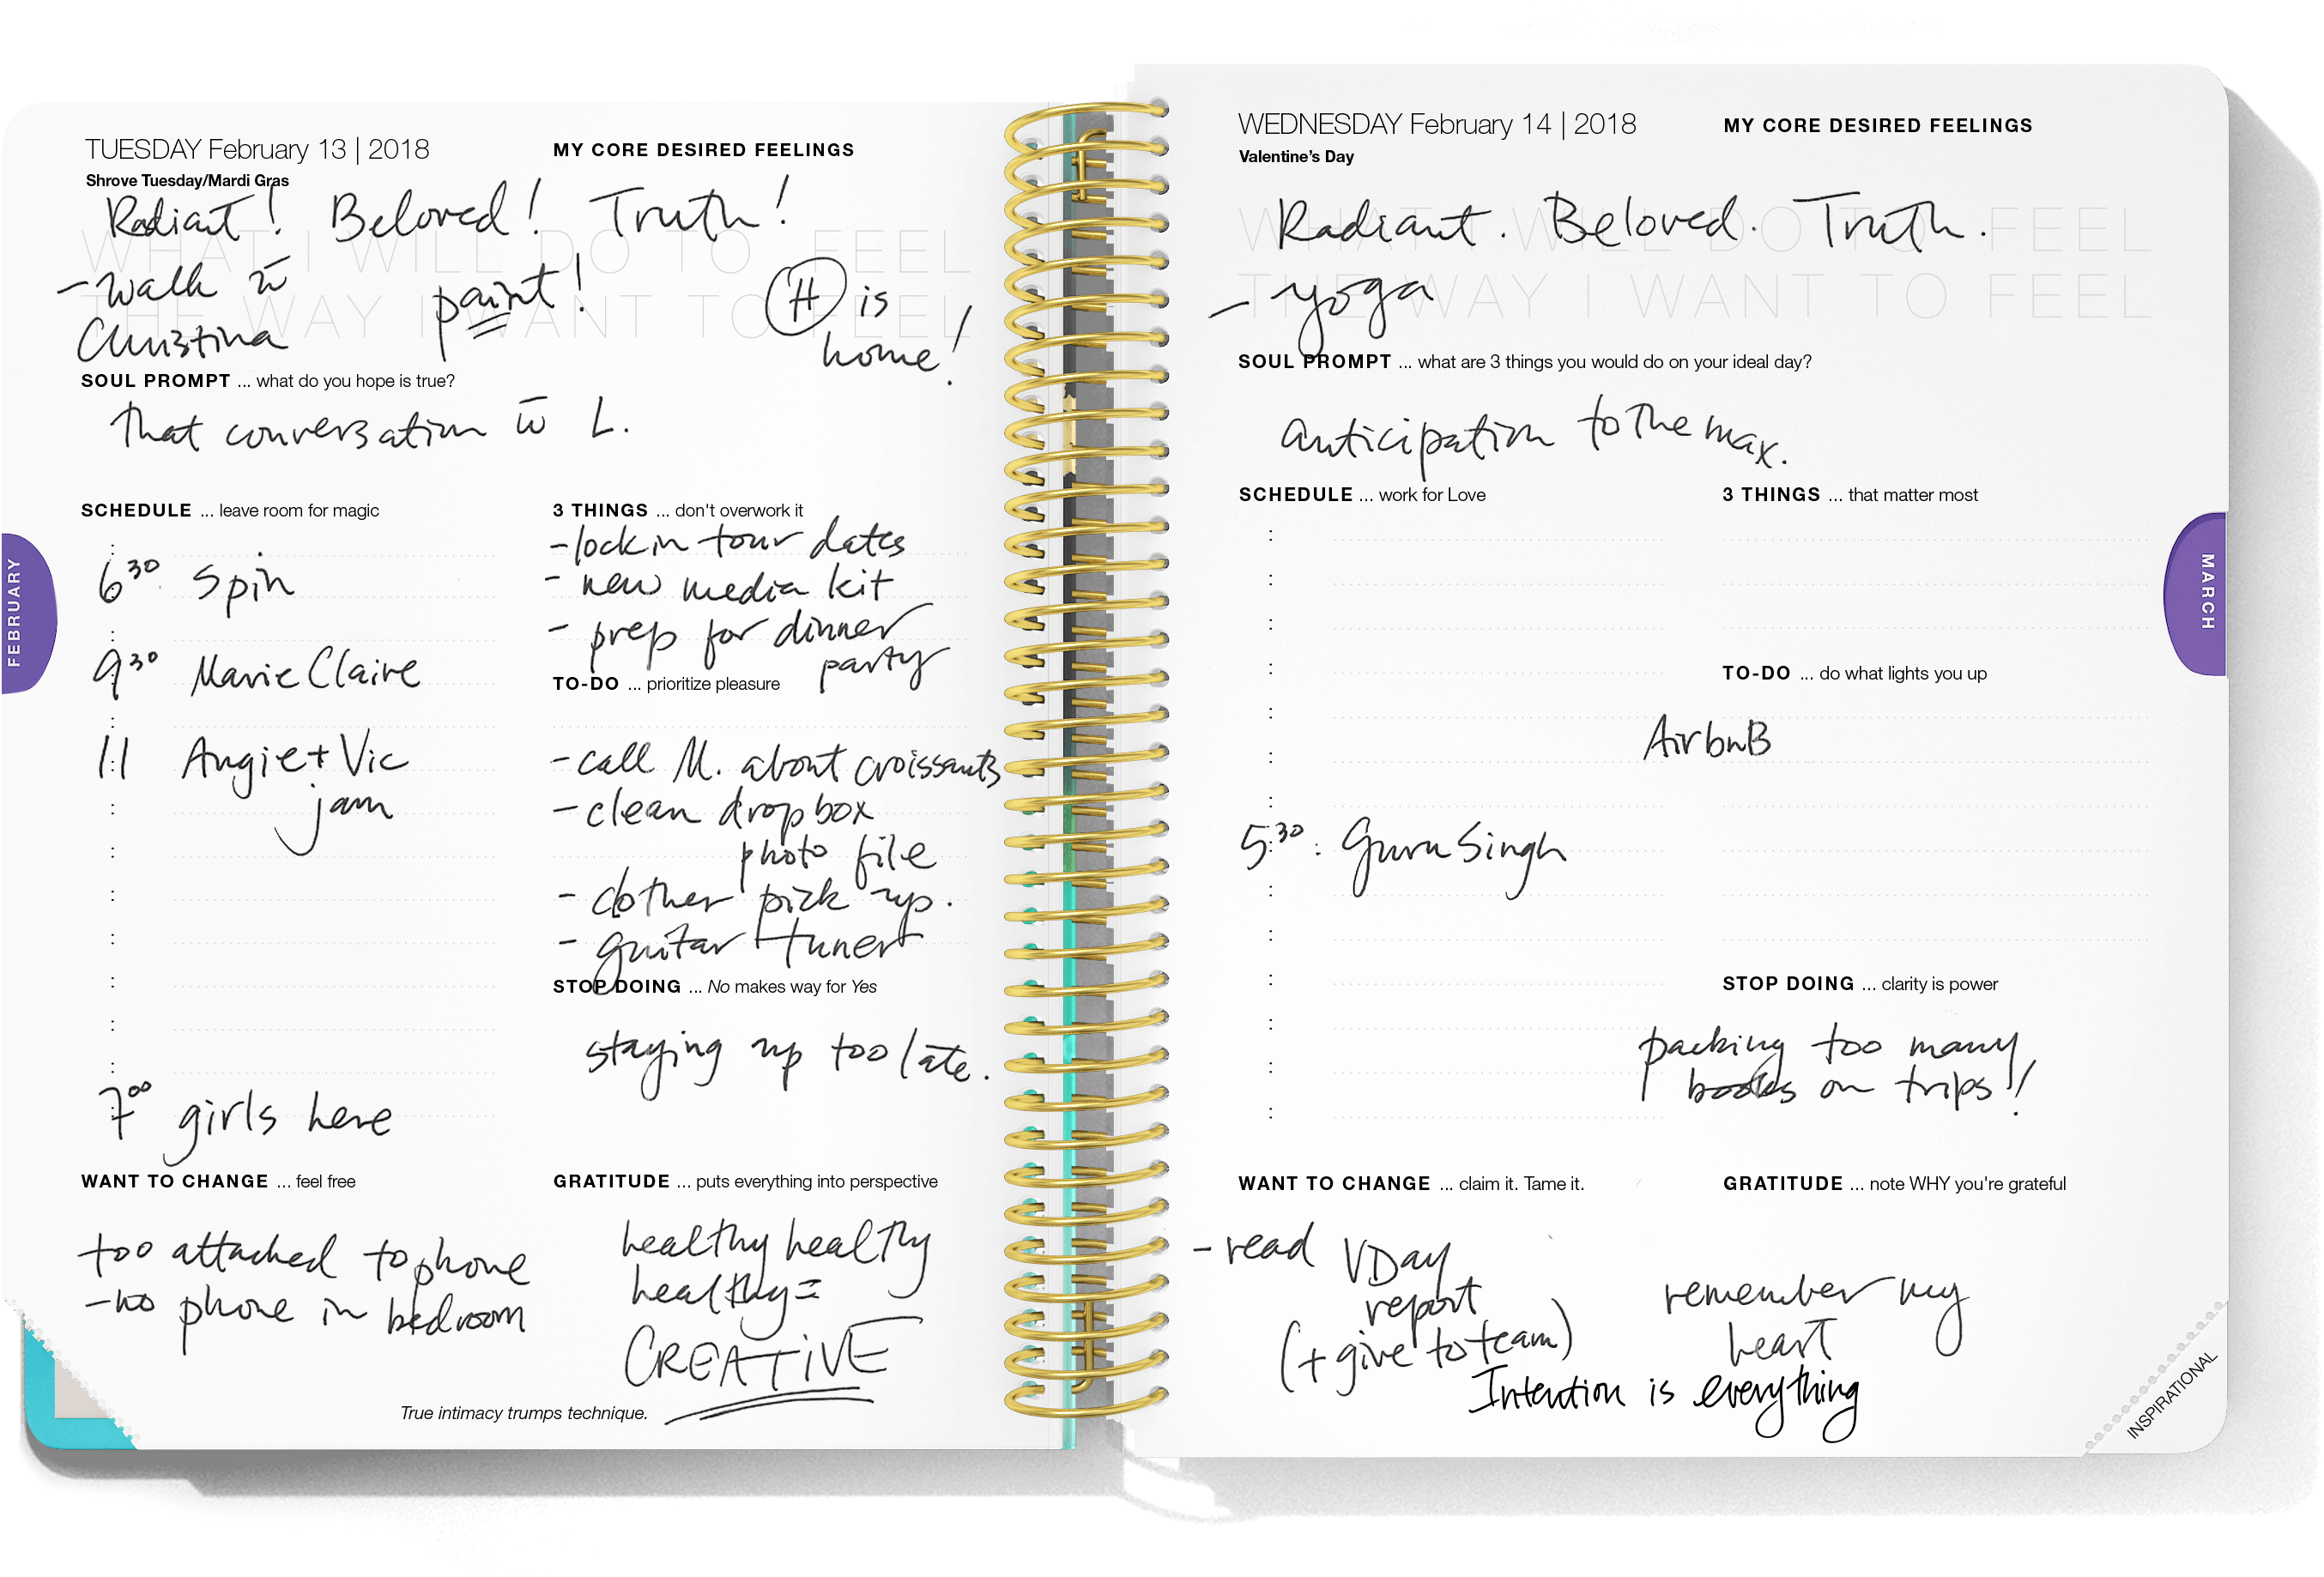 TUESDAY February 13 | 2018
MY CORE DESIRED FEELINGS
Shrove Tuesday/Mardi Gras
Radiant! Beloved! Truth!
WHAT I WILL DO TO FEEL
THE WAY I WANT TO FEEL
- walk w̄
Christina
paint!
H is
home!
SOUL PROMPT ... what do you hope is true?
That conversation w̄ L.
SCHEDULE ... leave room for magic
6:30 Spin
9:30 Marie Claire
11 Angie + Vic
jam
7:00 girls here
3 THINGS ... don't overwork it
- lock in tour dates
- new media kit
- prep for dinner
party
TO-DO ... prioritize pleasure
- call M. about croissants
- clean dropbox
photo file
- clothes pick up.
- guitar tuner
STOP DOING ... No makes way for Yes
staying up too late.
WANT TO CHANGE ... feel free
too attached to phone
- no phone in bedroom
GRATITUDE ... puts everything into perspective
healthy healthy
healthy =
CREATIVE
True intimacy trumps technique.
FEBRUARY
WEDNESDAY February 14 | 2018
MY CORE DESIRED FEELINGS
Valentine's Day
Radiant. Beloved. Truth.
WHAT I WILL DO TO FEEL
THE WAY I WANT TO FEEL
- yoga
SOUL PROMPT ... what are 3 things you would do on your ideal day?
anticipation to the max.
SCHEDULE ... work for Love
5:30: Guru Singh
3 THINGS ... that matter most
TO-DO ... do what lights you up
AirbnB
STOP DOING ... clarity is power
packing too many
books on trips!!
WANT TO CHANGE ... claim it. Tame it.
- read VDay
report
(+ give to team)
GRATITUDE ... note WHY you're grateful
remember my
heart
Intention is everything
MARCH
INSPIRATIONAL